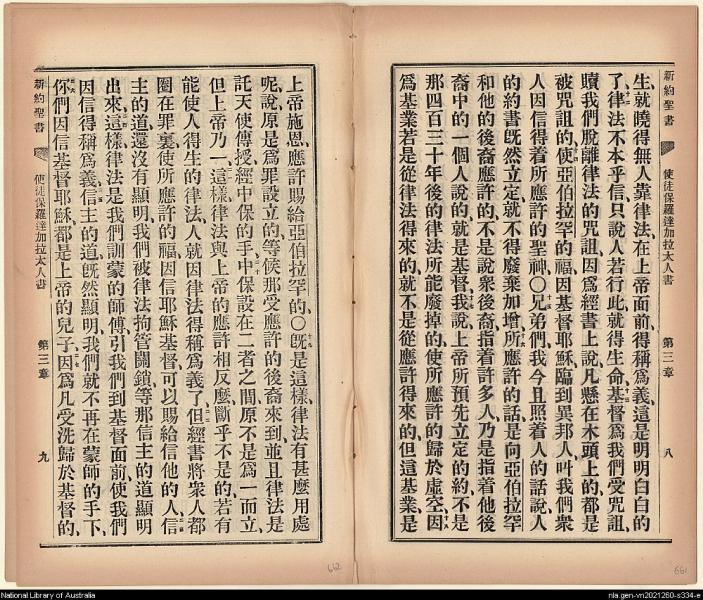 新約聖書 使徒保羅達加拉太人書 第三章 八
生就曉得無人靠律法在上帝面前得稱爲義這是明明白白的
了律法不本乎信只說人若行此就得生命基督爲我們受咒詛
贖我們脫離律法的咒詛因爲經書上說凡懸在木頭上的都是
被咒詛的使亞伯拉罕的福因基督耶穌臨到異邦人叫我們衆
人因信得着所應許的聖神〇兄弟們我今且照着人的話說人
的約書旣然立定就不得廢棄加增所應許的話是向亞伯拉罕
和他的後裔應許的不是說衆後裔指着許多人乃是指着他後
裔中的一個人說的就是基督我說上帝所預先立定的約不是
那四百三十年後的律法所能廢掉的使所應許的歸於虛空因
爲基業若是從律法得來的就不是從應許得來的但這基業是
上帝施恩應許賜給亞伯拉罕的〇旣是這樣律法有甚麼用處
呢說原是爲罪設立的等候那受應許的後裔來到並且律法是
託天使傳授經中保的手中保設在二者之間原不是爲一而立
但上帝乃一這樣律法與上帝的應許相反麼斷乎不是的若有
能使人得生的律法人就因律法得稱爲義了但經書將衆人都
圈在罪裏使所應許的福因信耶穌基督可以賜給信他的人信
主的道還沒有顯明我們被律法拘管關鎖等那信主的道顯明
出來這樣律法是我們訓蒙的師傅引我們到基督面前使我們
因信得稱爲義信主的道旣然顯明我們就不再在蒙師的手下
你們因信基督耶穌都是上帝的兒子因爲凡受洗歸於基督的
新約聖書 使徒保羅達加拉太人書 第三章 九
662
661
National Library of Australia
nla.gen-vn2021260-s334-e